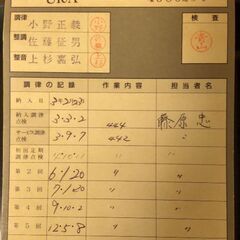 調律 小野正義
整調 佐藤征男
整音 上杉嘉弘
検査
調律の記録 作業内容 担当者名
納入月
納入調律点検 3・3・2 444 藤原忠
サービス調律点検 3・9・7 442 〃
初回定期調律点検 〃 〃
第2回 6/20 〃 〃
第3回 7/20 〃 〃
第4回 9・10・2 〃 〃
第5回 12・5・8 〃 〃